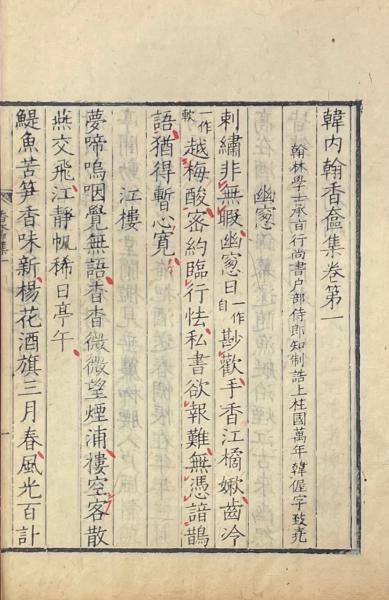 韓内翰香奩集卷第一
翰林學士承旨行尚書户部侍郎知制誥上柱國萬年韓偓字致堯
幽窻
刺繡非無暇幽窻日一作自尠歡手香江橘嫩齒冷
一作軟越梅酸密約臨行怯私書欲報難無憑諳鵲
語猶得暫心寛
江樓
夢啼嗚咽覺無語杳杳微微望煙浦樓空客散
燕交飛江靜帆稀日亭午
鯷魚苦笋香味新楊花酒旗三月春風光百計